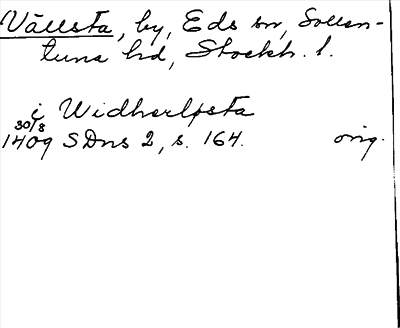 Vällsta, by, Eds sn, Sollen-
tuna hd, Stockh. l.
i Widherlpsta
30/8
1409 SDns 2, s. 164. orig.